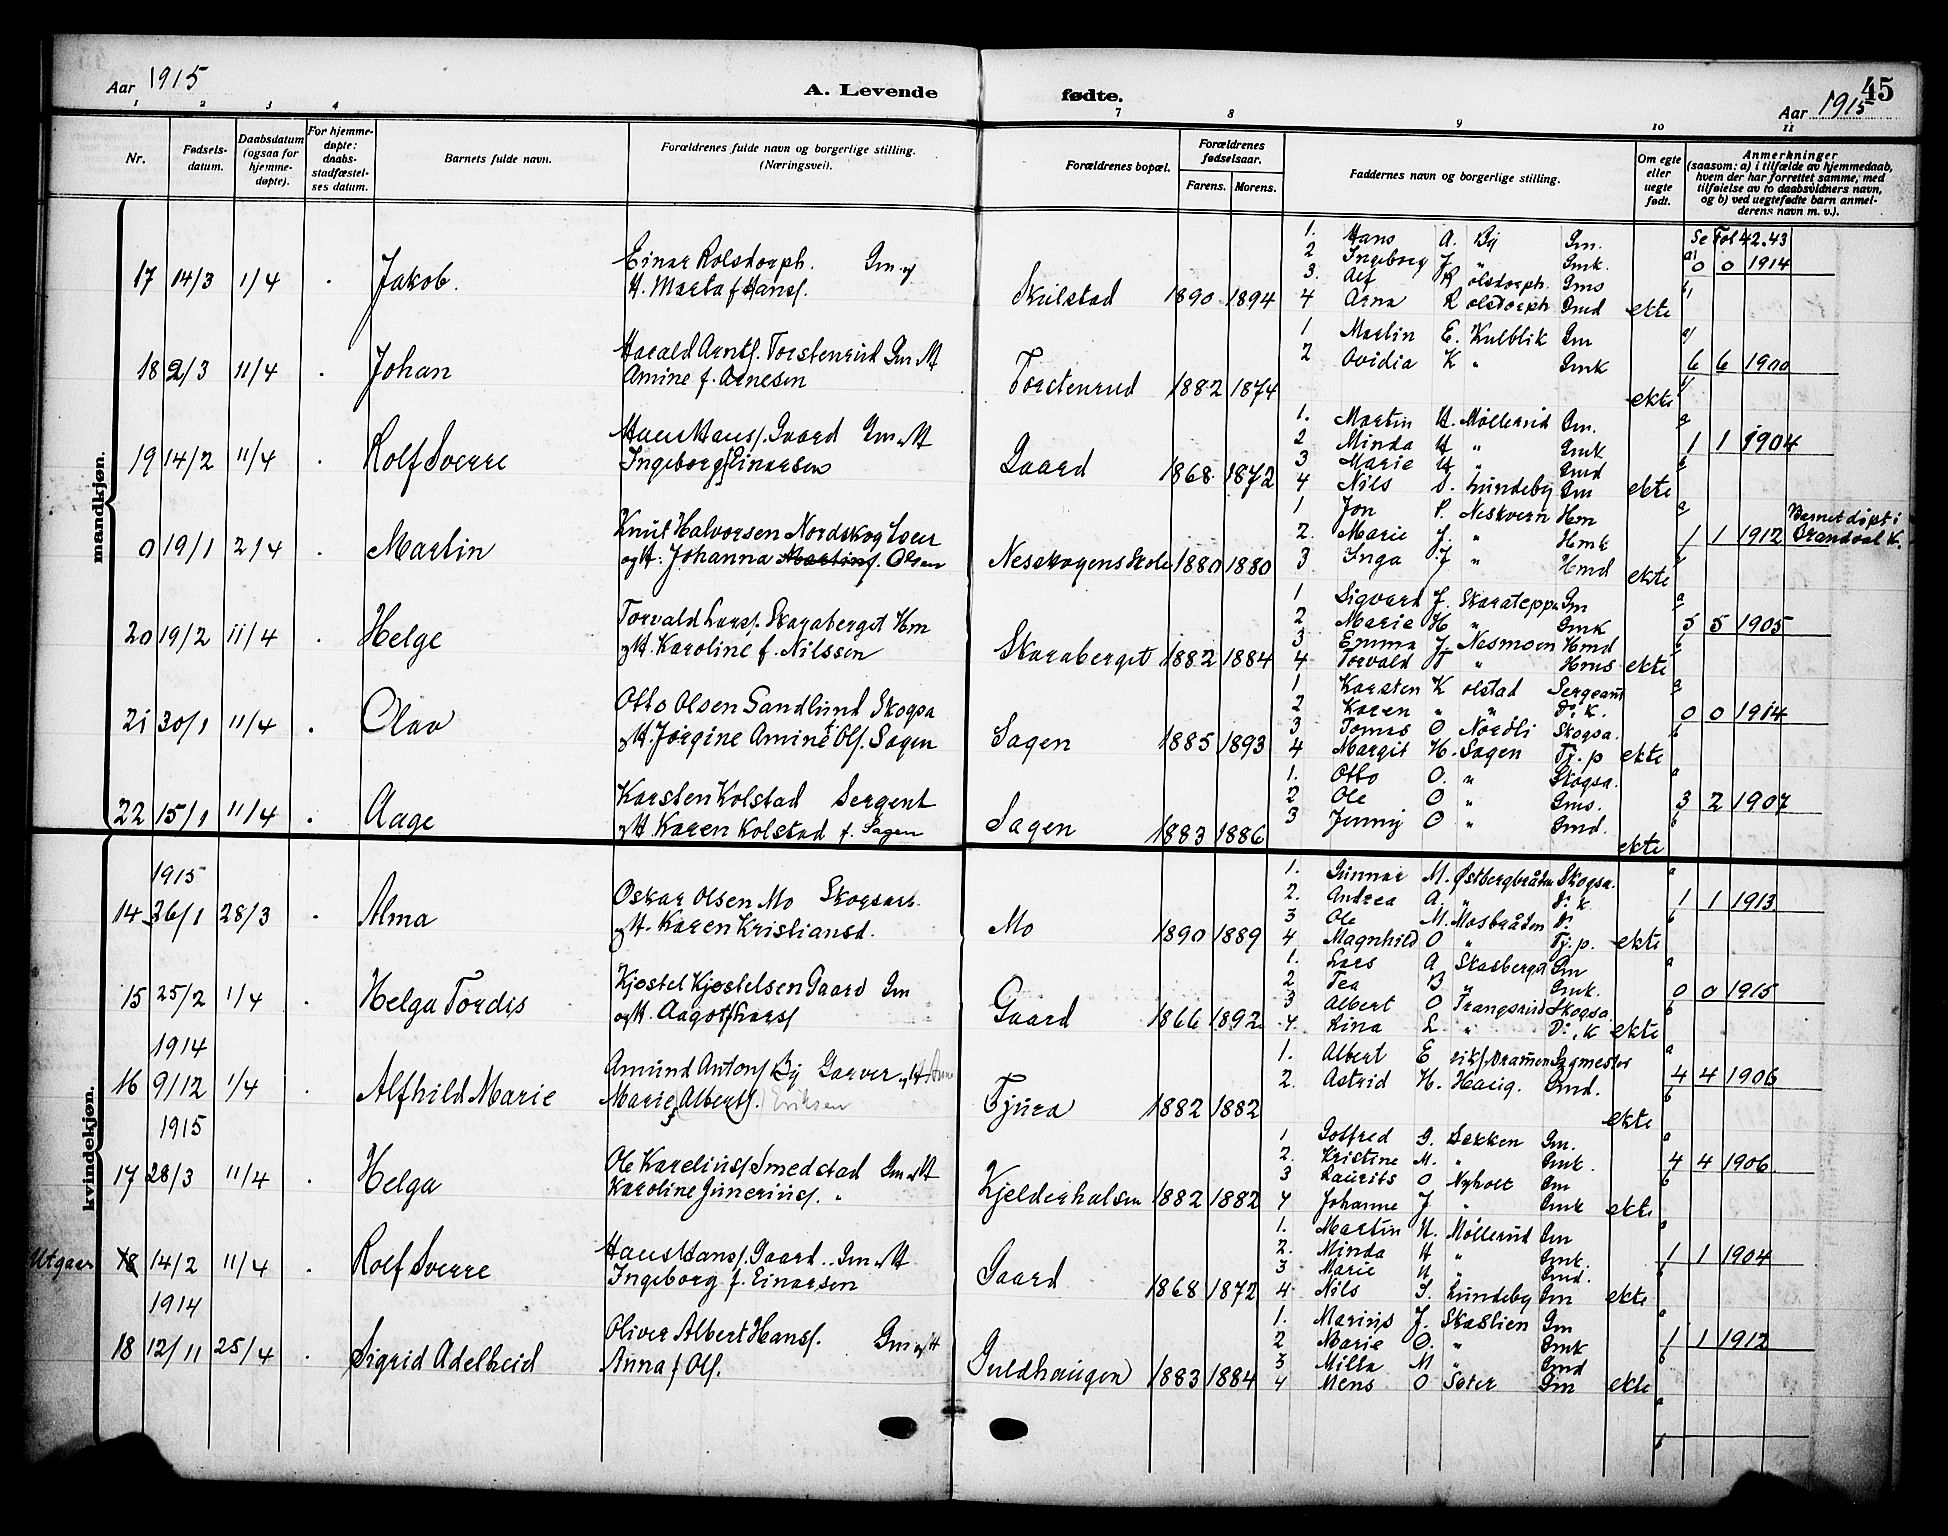 Aar 1915 A. Levende fødte. Aar 1915 45
1 2 3 4 7 8 9 10 11
Nr. Fødsels-datum. Daabsdatum (ogsaa for hjemme-døpte). For hjemme-døpte: daabs-stadfæstel-ses datum. Barnets fulde navn. Forældrenes fulde navn og borgerlige stilling. (Næringsvei). Forældrenes bopæl. Forældrenes fødselsaar. Farens. Morens. Faddernes navn og borgerlige stilling. Om egte eller uegte født. Anmerkninger (saasom: a) i tilfælde av hjemmedaab, hvem der har forrettet samme, med tilføielse av to daabsvidners navn, og b) ved uegtefødte barn anmel-derens navn m. v.).
mandkjøn.
17 14/3 1/4 Jakob. Einar Rolsdorph. Gm og H. Marta f Hans. Skulstad 1890 1894 ekte
1. Hans A. By Gm. Se Fol 42.43
2 Ingeborg J. " Gmk. a) 0 0 1914
3. Alf Rolsdorph. Gms
4 Arna Rolsdorph Gmd
18 2/3 11/4 Johan Harald Arnts. Torstenrud Gm H Amine f. Arnesen Torstenrud 1882 1874 ekte
1 Martin E. Kulblik Gm a)
2 Ovidia K " Gmk 6 6 1900
19 14/2 11/4 Rolf Sverre Hans Hans. Gaard Gm H Ingeborg f Einarsen Gaard 1868 1872 ekte
1. Martin H. Møllerud Gm. a
2 Minda H " Gmk 1 1 1904
3 Marie H " Gmd
4 Nils S. Lundeby Gm
0 19/1 2/4 Martin Knut Halvorsen Nordskog og H. Johanna Martins. Olsen Nesskogens Skole 1880 1880 ekte
1 Jon P. Neskvern Hm Barnet døpt i
2. Marie J. " Hmk 1 1 1912 Brandval K.
3 Inga J " Hmd
20 19/2 11/4 Helge Torvald Lars. Skaraberget Hm og H. Karoline f. Nilssen Skaraberget 1882 1884 ekte
1 Sigvard J. Skaratepp Gm a
2 Marie H " Gmk 5 5 1905
3 Emma J. Nesmoen Hmd
4 Torvald T " Hms
21 30/1 11/4 Olav Otto Olsen Sandlund Skogsa og H. Jørgine Amine f Ols. Sagen Sagen 1885 1893 ekte
1 Karsten Kolstad Sergeant a
2 Karen " " D: K. 0 0 1914
3 Tomas O Nordli Skogsa.
4 Margit H. Sagen Tj. p
22 15/1 11/4 Aage Karsten Kolstad Sergent og H Karen Kolstad f. Sagen Sagen 1883 1886 ekte
1. Otto O. " Skogsa. a
2 Ole O " Gms. 3 2 1907
3 Jenny O " Gmd.
kvindekjøn.
1915
14 26/1 28/3 Alma Oskar Olsen Mo Skogsarb. og H. Karen Kristiansd. Mo 1890 1889 ekte
1. Gunnar M. Østbergbråden Skogsa. a
2. Andrea A. " D: K 1 1 1913
3 Ole M. Mosbråden D:
4 Magnhild O " Tj. p.
15 25/2 1/4 Helga Tordis Kjøstel Kjøstelsen Gaard Gm og H. Aagot f Lars Gaard 1866 1892 ekte
1. Lars A Skasberget Gm a
2 Tea B " Gmk. 0 0 1915
3 Albert O Trangsrud Skogsa.
4. Rina L. " D:, K
1914
16 9/12 1/4 Alfhild Marie Amund Antons By Garver og H Marie f Alberts. Eriksen Tjura 1882 1882 ekte
1. Albert Erik Sagmester a
2. Astrid H. Haug. Gmd. 4 4 1906
1915
17 28/3 11/4 Helga Ole Karelius Smedstad Gm og H Karoline Junerius. " Kjelderhalsen 1882 1882 ekte
1 Gotfred G. Bekken Gm. a
2. Kristine M. " Gmk. 4 4 1906
3 Laurits O Nyholt Gm
4 Johanne J " Gmk
Utgaar 18 14/2 11/4 Rolf Sverre Hans Hans. Gaard. Gm H Ingeborg f. Einarsen Gaard 1868 1872 ekte
1. Martin H. Møllerud Gm a
2. Minda H " Gmk. 1 1 1904
3 Marie H " Gmd.
4. Nils S. Lundeby Gm
1914
18 12/11 25/4 Sigrid Adelheid Oliver Albert Hans. Gm og H Anna f Ols. Guldhaugen 1883 1884 ekte
1. Marius J. Skaslien Gm a
2 Marie O. " Gmk 1 1 1912
3 Milla M " Gmd b
4 Mens O Sæter Gm
a
b